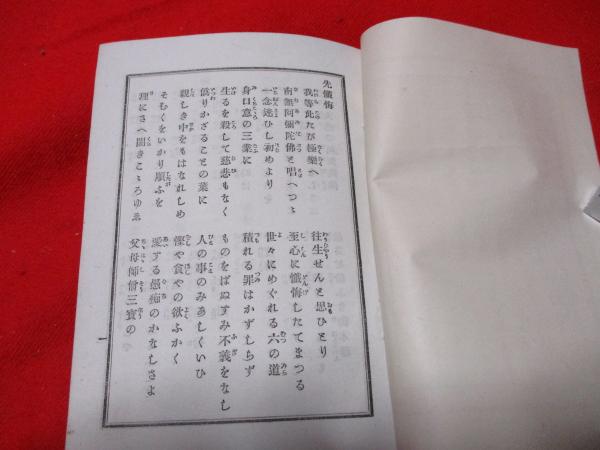 先懺悔
我等此たび極樂へ　往生せんと思ひとり
南無阿彌陀佛と唱へつゝ　至心に懺悔したてまつる
一念迷ひし初めより　世々にめぐれる六の道
身口意の三業に　積れる罪はかずしらず
生るを殺して慈悲もなく　ものをばぬすみ不義をなし
僞りかざることの葉に　人の事のみあしくいひ
親しき中をもはなれしめ　慳や貪やの欲ふかく
そむくをいかり順ふを　愛する愚痴のかなしさよ
理にさへ闇きこゝろゆゑ　父母師僧三寳の
一